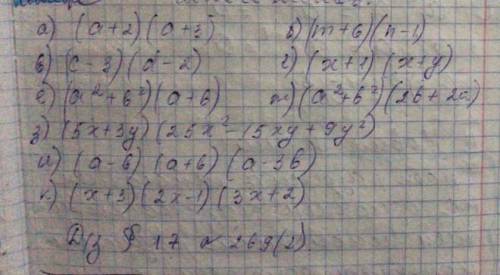 а) (a+2)(a+3) б) (m+6)(n-1)
в) (c-3)(d-2) г) (x+1)(x+y)
е) (a²+b²)(a+b) ж) (a²+b²)(2b+2a)
з) (5x+3y)(25x²-15xy+9y²)
и) (a-b)(a+b)(a-3b)
к) (x+3)(2x-1)(3x+2)
Д/з § 17 № 269(2)